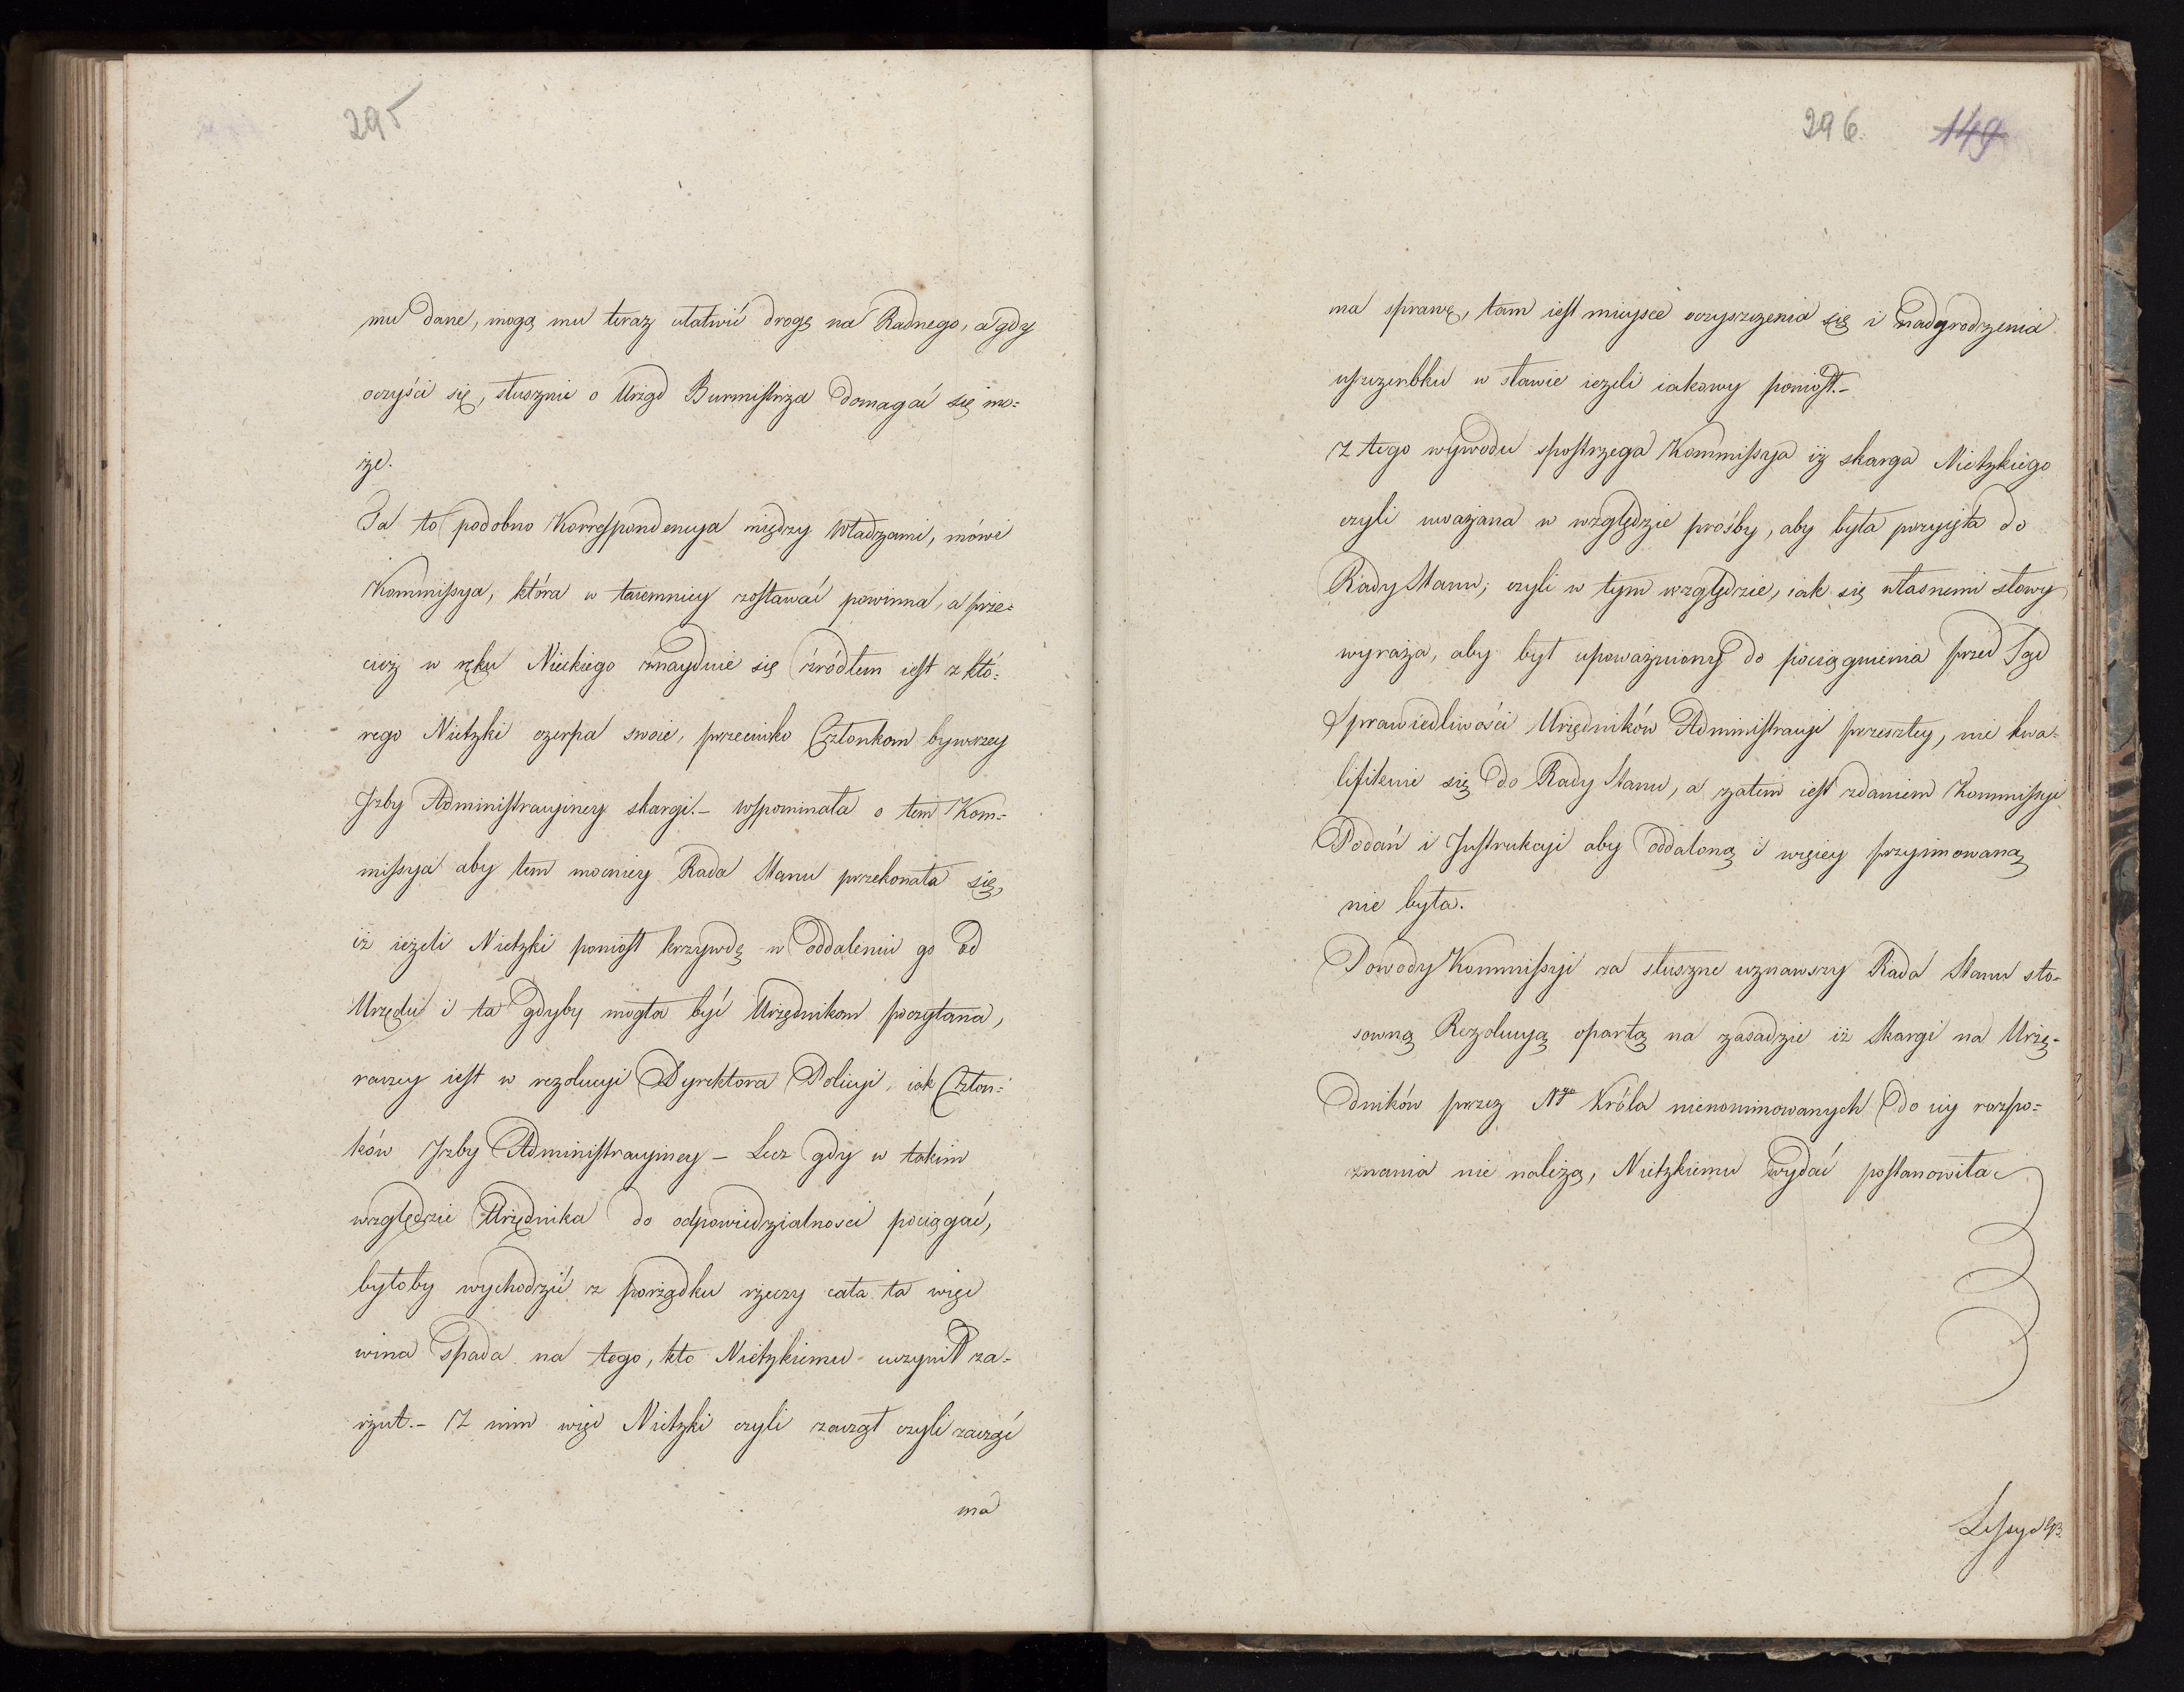 295
mu dane, mogą mu teraz ułatwić drogę na Radnego, a gdy
oczyści się, słusznie o Urząd Burmistrza domagać się mo=
że.
Ta to podobno Korrespondencya między Władzami, mówi
Kommissya, która w taiemnicy zostawać powinna, a prze=
cież w ręku Nieckiego znayduie się źródłem iest z któ=
rego Nietzki czerpa swoie, przeciwko Członkom bywszey
Izby Administracyiney skargi. – Wspominała o tem Kom=
missya aby tem mocniey Rada Stanu przekonała się,
iż ieżeli Nietzki poniosł krzywdę w oddaleniu go od
Urzędu i ta gdyby mogła być Urzędnikom poczytana,
raczey iest w rezolucyi Dyrektora Policyi, iak Człon=
ków Izby Administracyiney – Lecz gdy w takim
względzie Urzędnika do odpowiedzialnosci pociągać,
byłoby wychodzić z porządku rzeczy cała ta więc
wina spada na tego, kto Nietzkiemu uczynił za=
rzut. – Z nim więc Nietzki czyli zaczął czyli zacząć
ma
296. 149
ma sprawę, tam iest mieysce oczyszczenia się i nadgrodzenia
uszczerbku w sławie ieżeli iakowy poniosł. –
Z tego wywodu spostrzega Kommissya iż skarga Nietzkiego
czyli uważana w względzie prośby, aby była przyięta do
Rady Stanu; czyli w tym względzie, iak się własnemi słowy
wyraża, aby był upoważniony do pociągnienia przed Sąd
Sprawiedliwości Urzędników Administracyi przeszłey, nie kwa=
lifikuie się do Rady Stanu, a zatem iest zdaniem Kommissyi
Podań i Instrukcyi aby oddaloną i więcey przyimowaną
nie była.
Powody Kommissyi za słuszne uznawszy Rada Stanu sto=
sowną Rezolucyą opartą na zasadzie iż Skargi na Urzę=
dników przez Ngo Króla nienominowanych do iey rozpo=
znania nie należą, Nietzkiemu wydać postanowiła